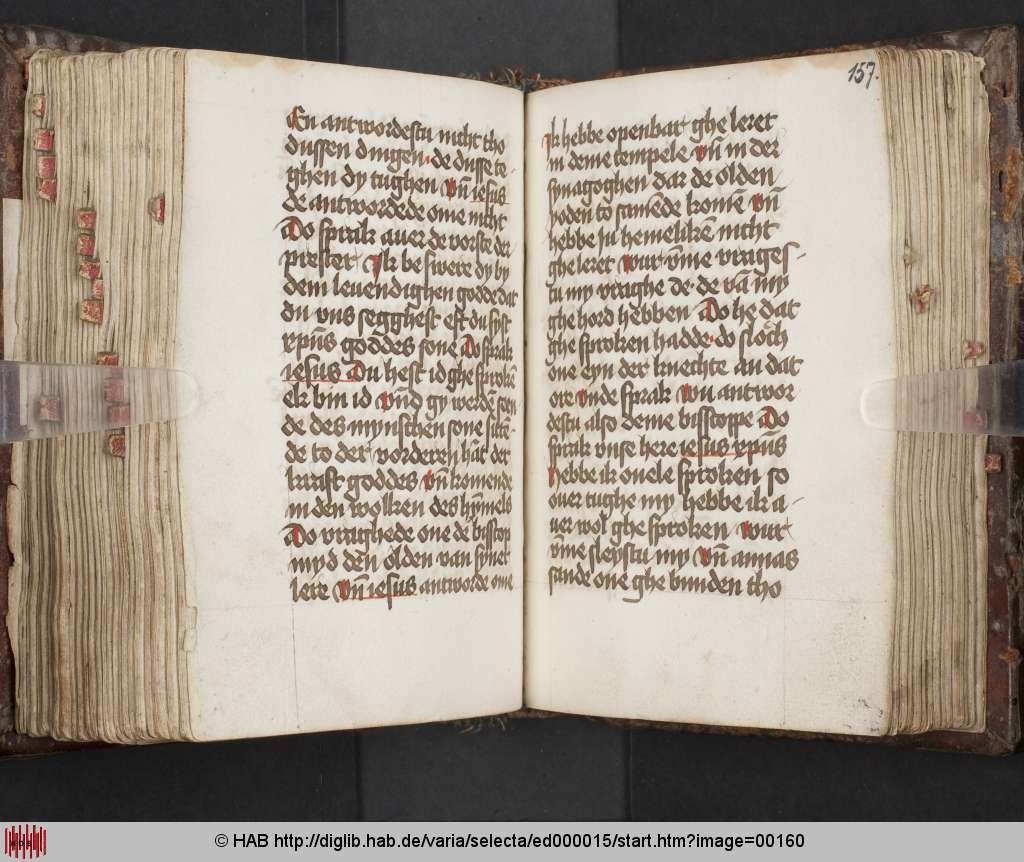 En antwordestu nicht tho
dussen dingen · de dusse te
ghen dy tughen Vn̄ iesus
de antwordede ome nicht
Do sprak auer de vorste der
prester Ik be swere dy by
dem leuendighen godde dat
du vns segghest eft du syst
xp̄us goddes sone Do sprak
iesus Du hest id ghe sprokē
ek bin id Vnd gy werdē seen
de des mynschen sone sittē-
de to der vorderen hāt der
kraft goddes Vn̄ komende
in den wolken des hȳmels
Do vraghede one de bisscop
myd den olden van syner
lere Vn̄ iesus antworde ome
157.
Ik hebbe openbar ghe leret
in deme tempele Vn̄ in der
synagoghen dar de olden
yoden to samēde komē Vn̄
hebbe in hemeliken nicht
ghe leret wur v̄me vrages-
tu my vraghe de · de vā my
ghe hord hebben Do he dat
ghe sproken hadde · do sloch
one eyn der knechte an dat
ore vnde sprak Vn antwor
destu also deme bisscoppe Do
sprak vnse here iesus xp̄us
Hebbe ik ouele sproken so
ouer tughe my hebbe ik a-
uer wol ghe sproken wur
v̄me sleystu my Vn̄ annas
sande one ghe bunden tho
© HAB http://diglib.hab.de/varia/selecta/ed000015/start.htm?image=00160